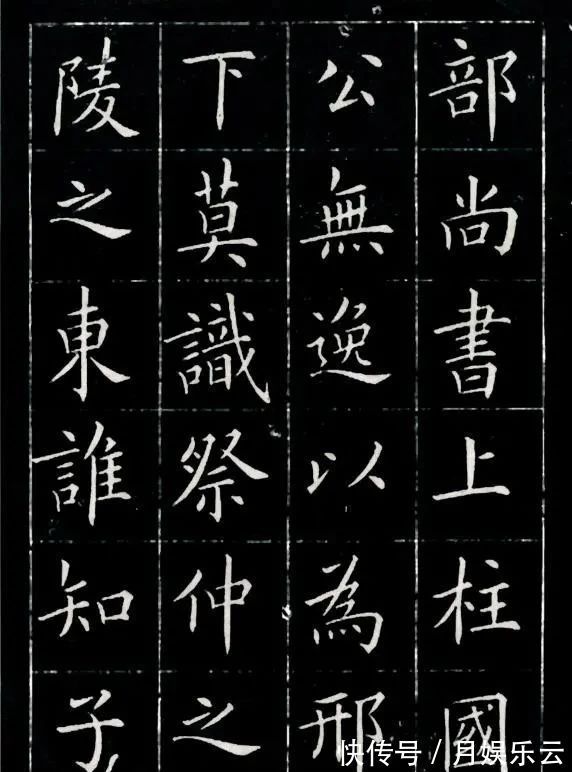 部尚書上柱國
公無逸以為邢
下莫識祭仲之
陵之東誰知子
快传号／月娱乐云